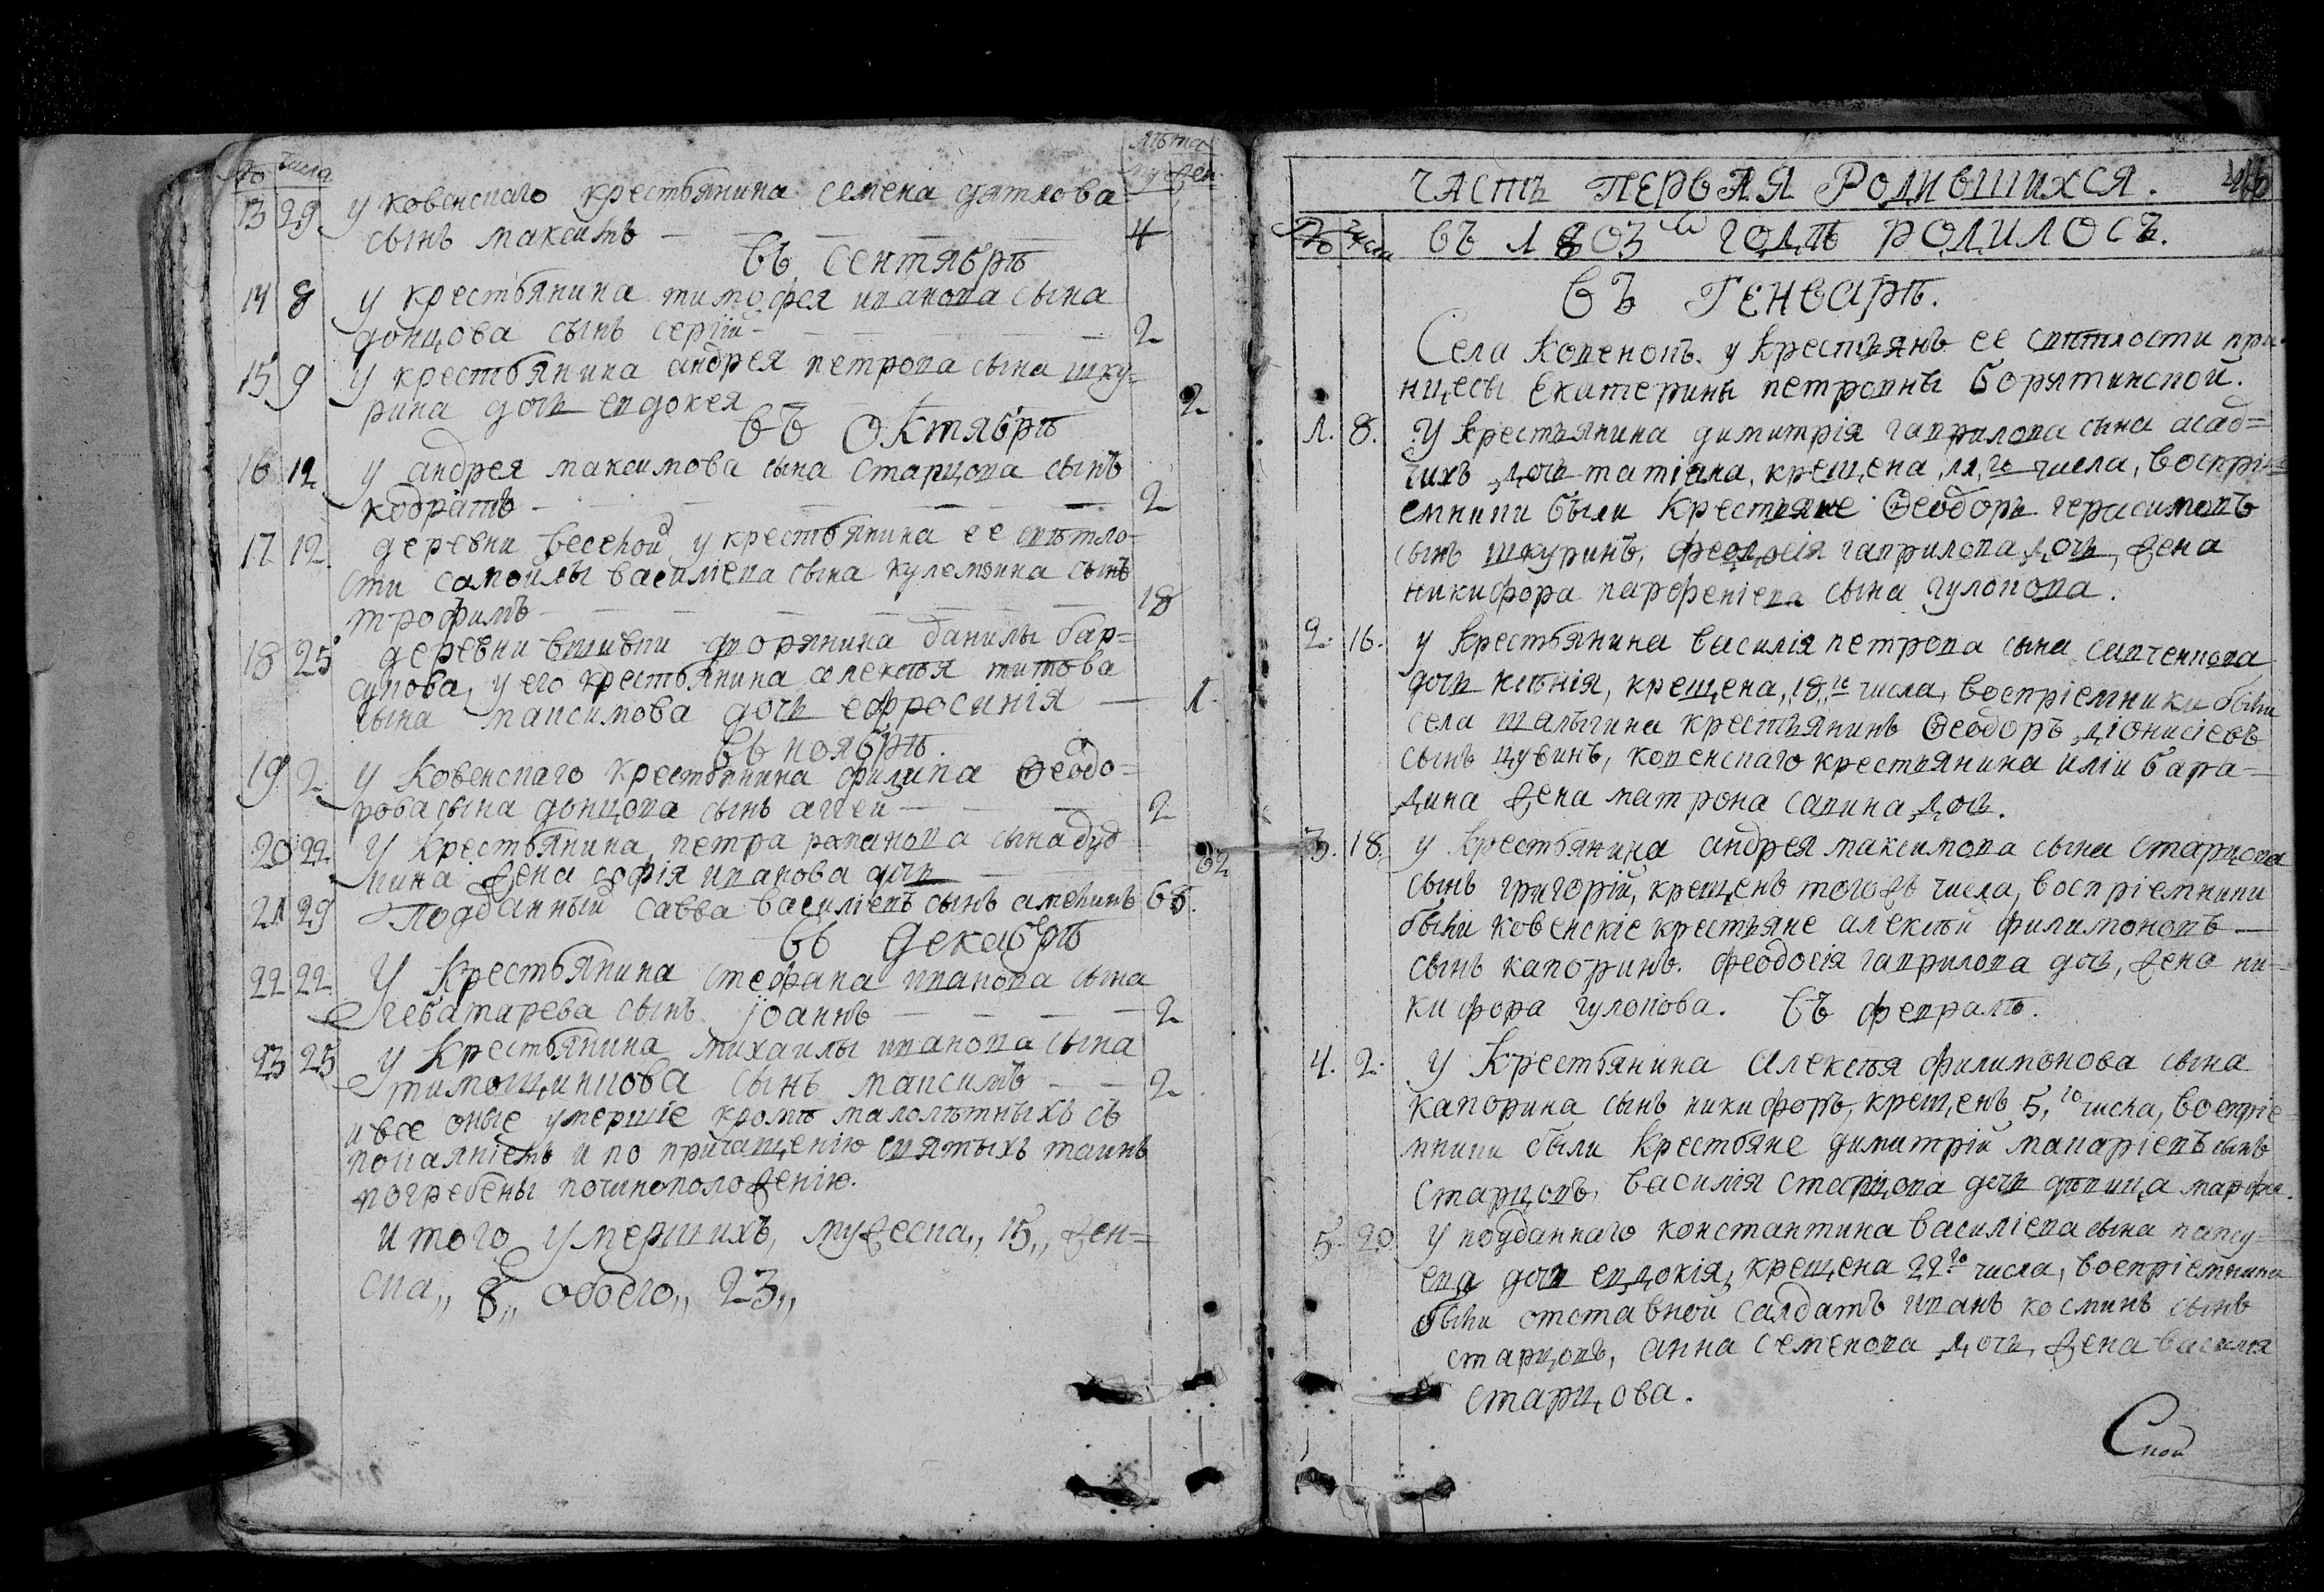 № числа лѣта
му жен
13 29 у ковенскаго крестьянина семена дятлова
сынъ максимъ 4
въ сентябрѣ
14 8 у крестьянина тимофея иванова сына
донцова сынъ сергій 2
15 9 у крестьянина андрея петрова сына шку=
рина дочь евдокея 2
въ октябрѣ
16 12 у андрея максимова сына старцова сынъ
кодратъ 2
17 12 деревни веселой у крестьянина ее свѣтло
сти самойлы василіева сына кулемзина сынъ
трофимъ 18
18 25 деревни вшивки дворянина данилы бар=
сукова, у его крестьянина алексѣя титова
сына максимова дочь ефросинія 1
въ ноябрѣ.
19 2 у ковенскаго крестьянина филипа ѳеодо=
рова сына донцова сынъ аггей 2
20 22 у крестьянина петра романова сына дуд
кина жена софія иванова дочь 32
21 29 подданный савва василіевъ сынъ амелинъ 65.
въ декабрѣ
22 22 у крестьянина стефана иванова сына
чеботарева сынъ іоаннъ 2
23 25 у крестьянина михаилы иванова сына
тимощинкова сынъ максимъ 2
и все оные умершіе кромѣ малолѣтныхъ съ
покаяніемъ и по причащенію святыхъ таинъ
погребены по чинопол оженію.
и того умершихъ, мужеска,, 15,, жен=
ска,, 8,, обоего,, 23,,
ЧАСТЬ ПЕРВАЯ РОДИВШИХСЯ.
№ числа ВЪ 1803 м ГОДѢ РОДИЛОСЬ.
ВЪ ГЕНВАРѢ.
Села Ковенокъ у крестьянъ ее свѣтлости при
нцесы Екатерины петровны борятинской.
1. 8. У крестьянина димитрія гаврилова сына асад=
чихъ дочь татіана, крещена, 11, го числа, воспріе
емники были крестьяне Ѳеодоръ герасимовъ
сынъ шкуринъ, феодосія гаврилова дочь, жена
никифора парфеніева сына гулокова.
2. 16. у крестьянина василія петрова сына савченкова
дочь ксѣнія, крещена, 18, го числа, воспріемники были
села шалыгина крестьянинъ Ѳеодоръ діонисіевъ
сынъ цувинъ, ковенскаго крестьянина иліи бара=
дина жена матрона савина дочь.
3. 18. у крестьянина андрея максимова сына старцова
сынъ григорій, крещенъ тогожъ числа, воспріемники
были ковенскіе крестьяне алексѣй филимоновъ
сынъ капоринъ. феодосія гаврилова дочь, жена ни=
кифора гулокова. въ февралѣ.
4. 2. у крестьянина Алексѣя филимонова сына
капорина сынъ никифоръ, крещенъ 5, го числа, воспріе
мники были крестьяне димитрій макаріевъ сынъ
старцовъ, василія старцова дочь дѣвица марфа.
5. 20 у подданнаго константина василіева сына папсу=
ева дочь евдокія, крещена 22 го числа, воспріемники
были отставной салдатъ иванъ косминъ сынъ
старцовъ, анна семенова дочь, жена василія
старцова.